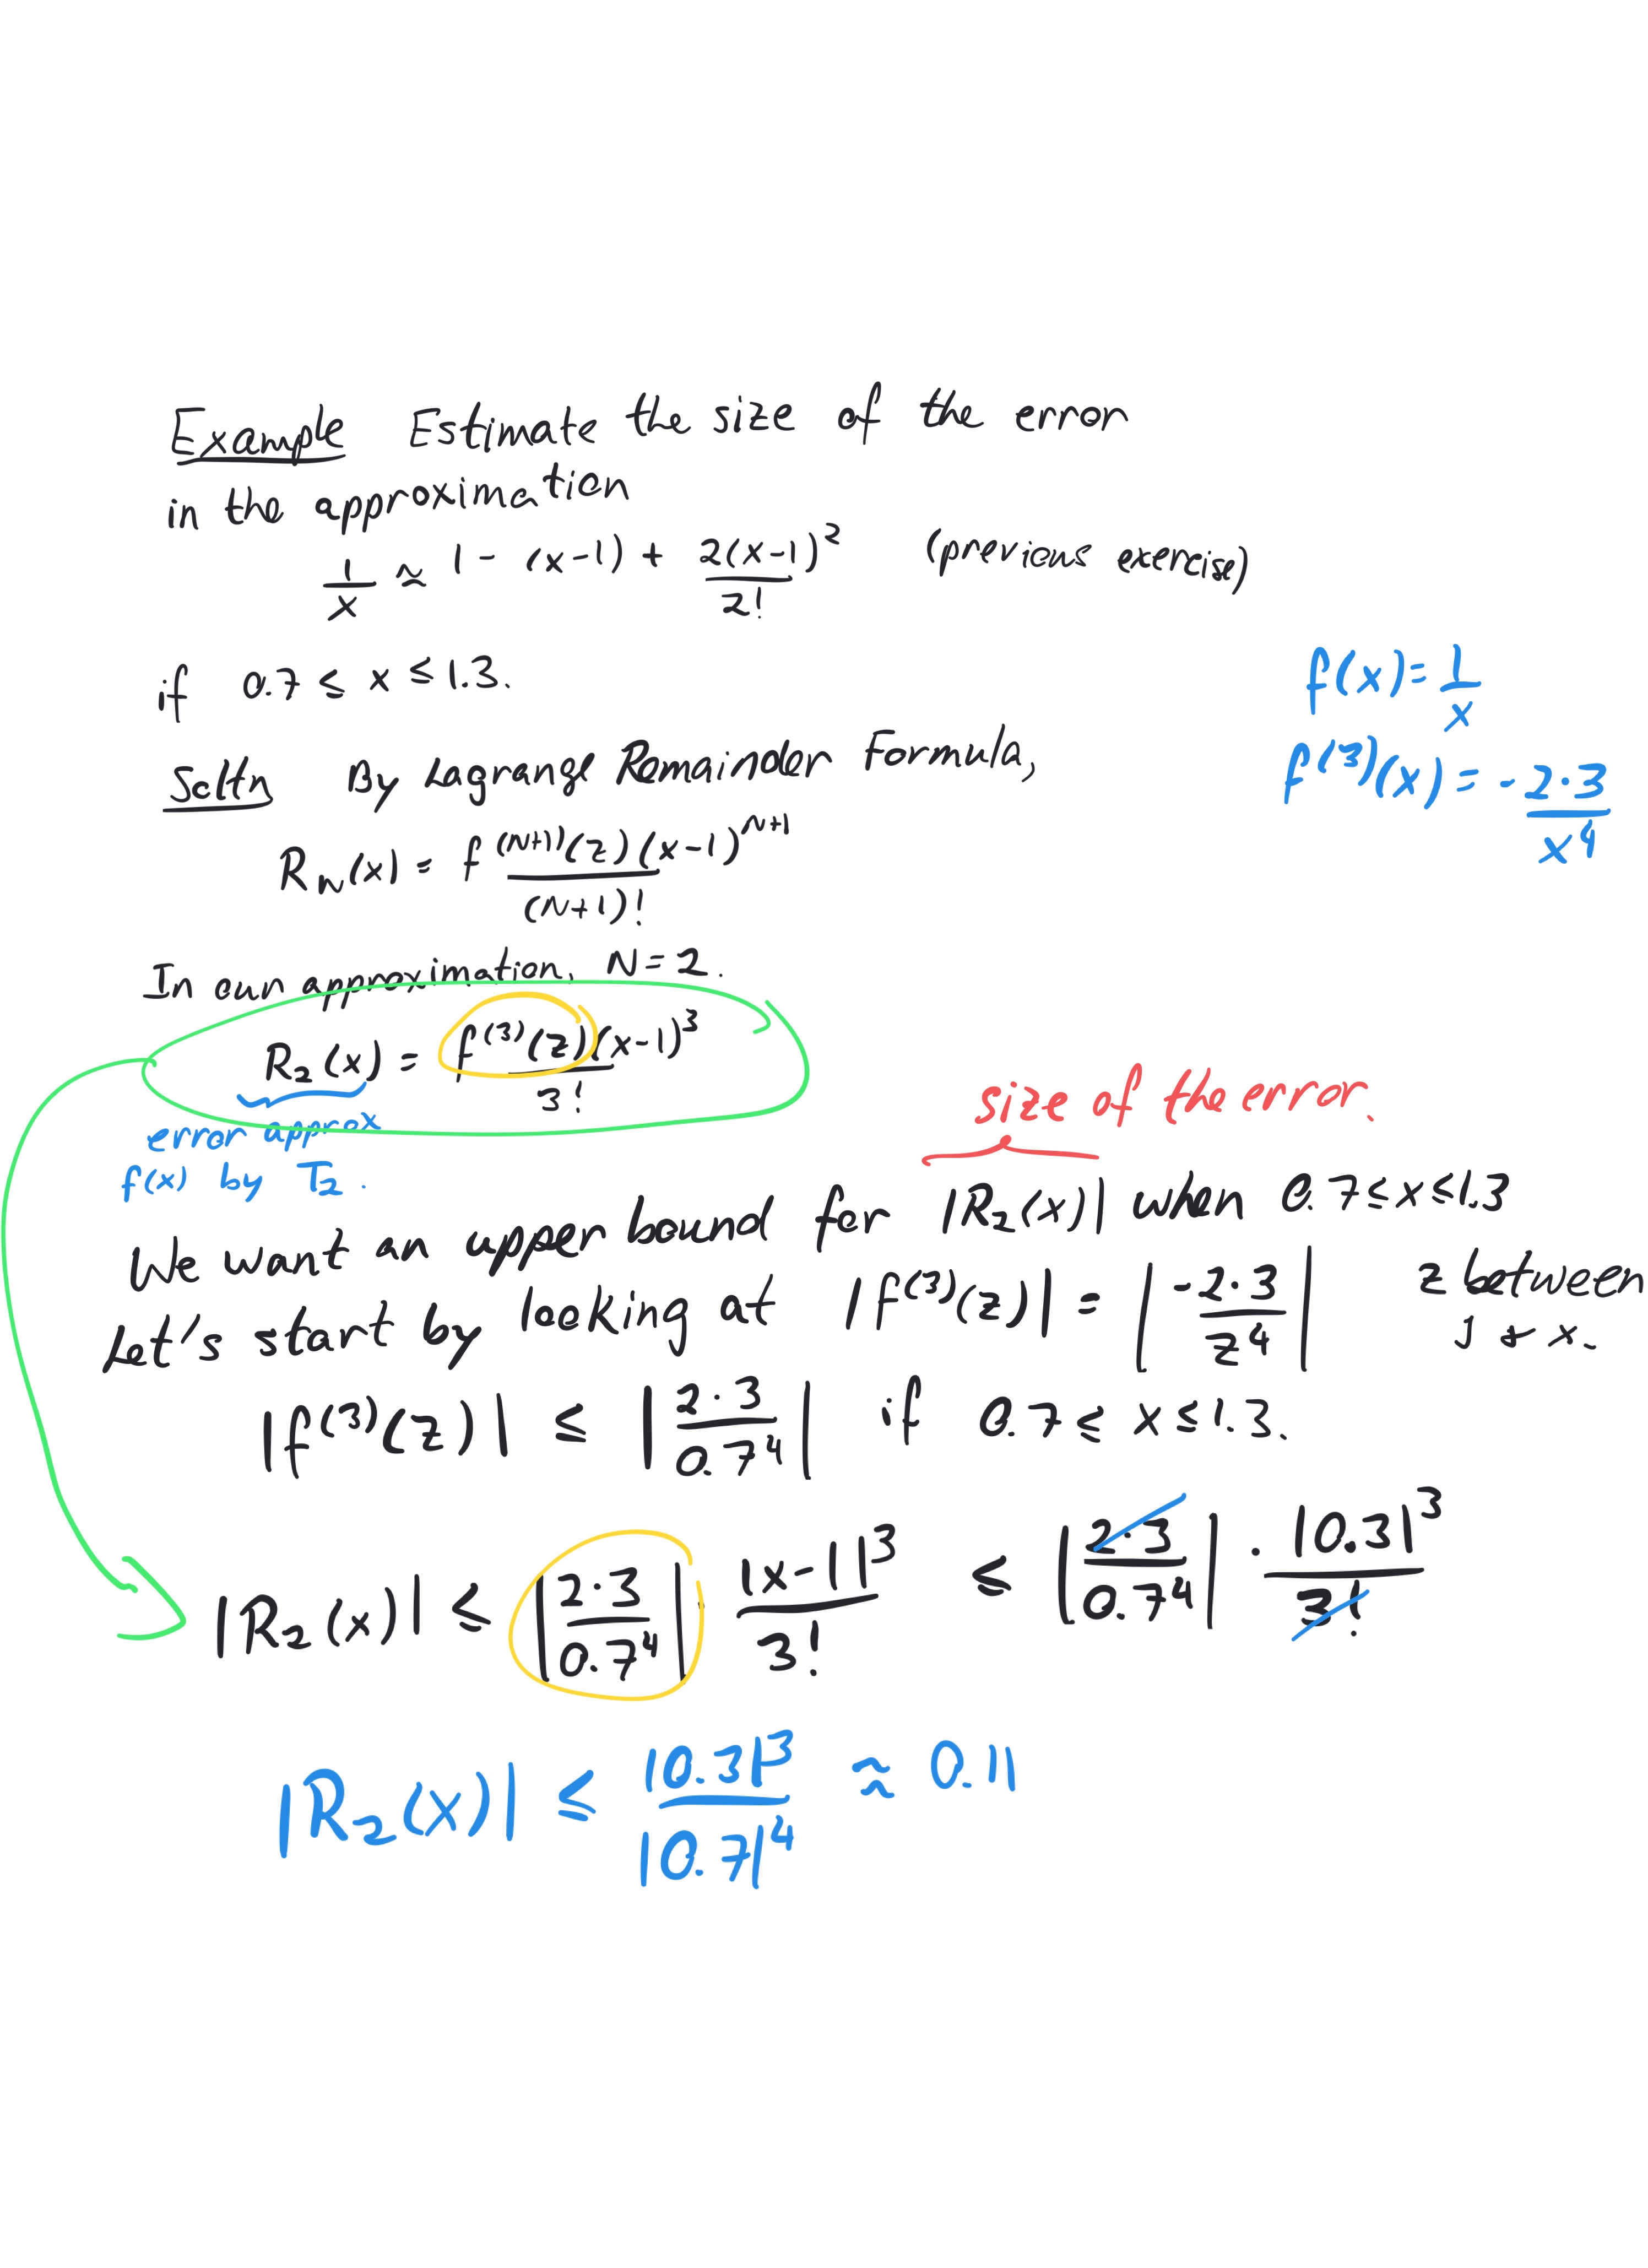 Example Estimate the size of the error
in the approximation
1/x ≈ 1 - (x-1) + 2(x-1)^3/2! (previous exercise)
if 0.7 ≤ x ≤ 1.3.
f(x) = 1/x
f^(3)(x) = -2·3/x^4
Soltn By Lagrange Remainder Formula,
R_N(x) = f^(N+1)(z)(x-1)^(N+1)/(N+1)!
In our approximation, N=2.
R_2(x) = f^(3)(z)(x-1)^3/3!
error approx
f(x) by T_2.
size of the error.
We want an upper bound for |R_2(x)| when 0.7≤x≤1.3
Let's start by looking at |f^(3)(z)| = |-2·3/z^4| z between
1 + x.
|f^(3)(z)| ≤ |2·3/0.7^4| if 0.7 ≤ x ≤ 1.3.
|R_2(x)| ≤ |2·3/0.7^4| · |x-1|^3/3! ≤ |2·3/0.7^4| · |0.3|^3/3!
|R_2(x)| ≤ |0.3|^3/|0.7|^4 ≈ 0.11